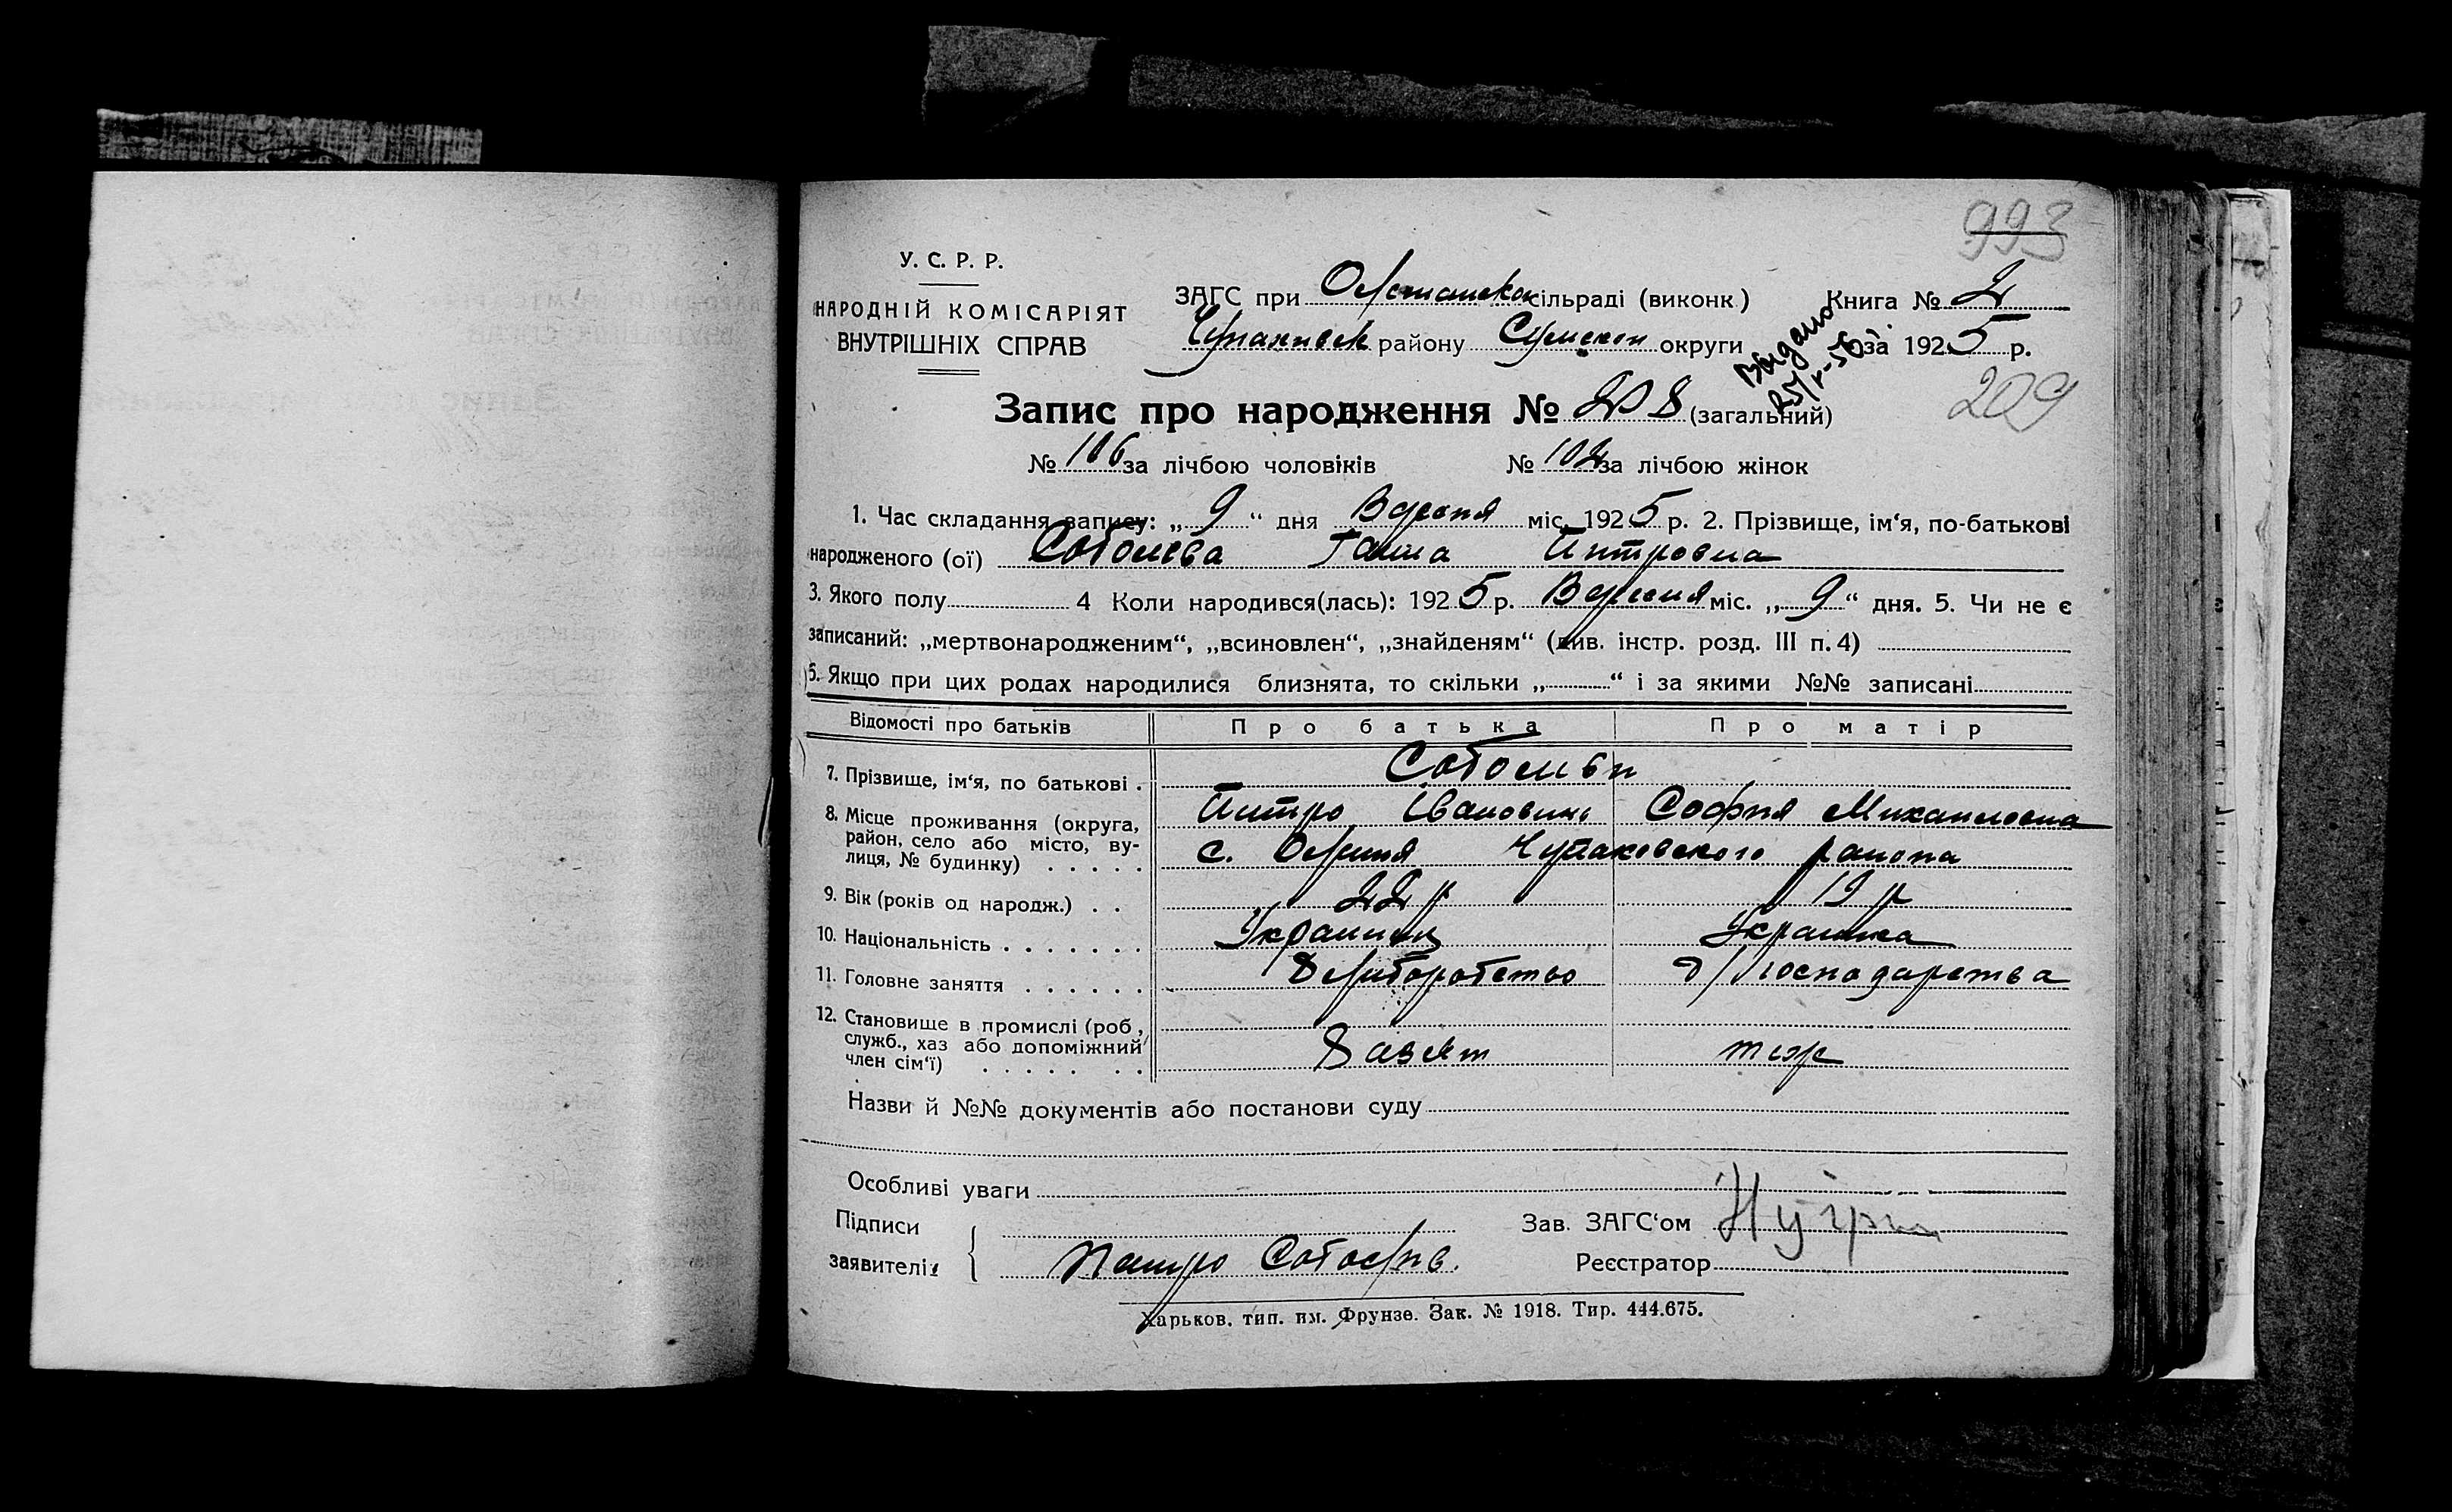 993
У. С. Р. Р.
НАРОДНІЙ КОМІСАРІЯТ
ВНУТРІШНІХ СПРАВ
ЗАГС при сільраді (виконк.) Книга № 2
району Сумскои округи за 1925 р.
Видано
209
Запис про народження № 208 (загальний)
№ 106 за лічбою чоловіків № 102 за лічбою жінок
1. Час складання запису: „ 9 “ дня Вересня міс. 1925 р. 2. Прізвище, ім‘я, по-батькові
народженого (ої) Соболева Ганна Питровна
3. Якого полу 4 Коли народився(лась): 1925 р. Вересня міс. „ 9 “ дня. 5. Чи не є
записаний: „мертвонародженим“, „всиновлен“, „знайденям“ (див. інстр. розд. III п. 4)
6. Якщо при цих родах народилися близнята, то скільки „ “ і за якими №№ записані
Відомості про батьків Про батька Про матір
7. Прізвище, ім‘я, по батькові . Соболеви
Питро Івановичь София Михаиловна
8. Місце проживання (округа, район, село або місто, вулиця, № будинку) . . . . . с. Чупаховского района
9. Вік (років од народж.) . . 22 р 19 р
10. Національність . . . . . . . Украинец Украинка
11. Головне заняття . . . . . . господарства
12. Становище в промислі (роб,
служб., хаз або допоміжний
член сім‘ї) . . . . . . . теж
Назви й №№ документів або постанови суду
Особливі уваги
Підписи
заявителів
Зав. ЗАГС‘ом
Петро Соболів.
Реєстратор
Харьков. тип. им. Фрунзе. Зак. № 1918. Тир. 444.675.